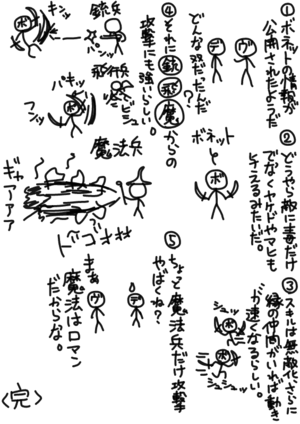 ①ボネットの情報が
公開されたようだ
ヴ
デ
どんな奴だったんだ
？
②どうやら敵に毒だけ
でなくヤケドやマヒも
与えるみたいだ。
ボネット
ボ
③スキルは無敵化、さらに
緑の仲間がいれば動き
が速くなるらしい。
シュッ
ボ
ボ
シュッ
シュシュッ
④それに銃飛魔からの
攻撃にも強いらしい。
銃兵
キンッ
パンッ
ボ
飛行兵
バキッ
フンッ
ボ
魔法兵
ギャアアア
ドゴオオオ
⑤ちょっと魔法兵だけ攻撃
やばくね？
デ
ヴ
まあ
魔法はロマン
だからな。
〈完〉